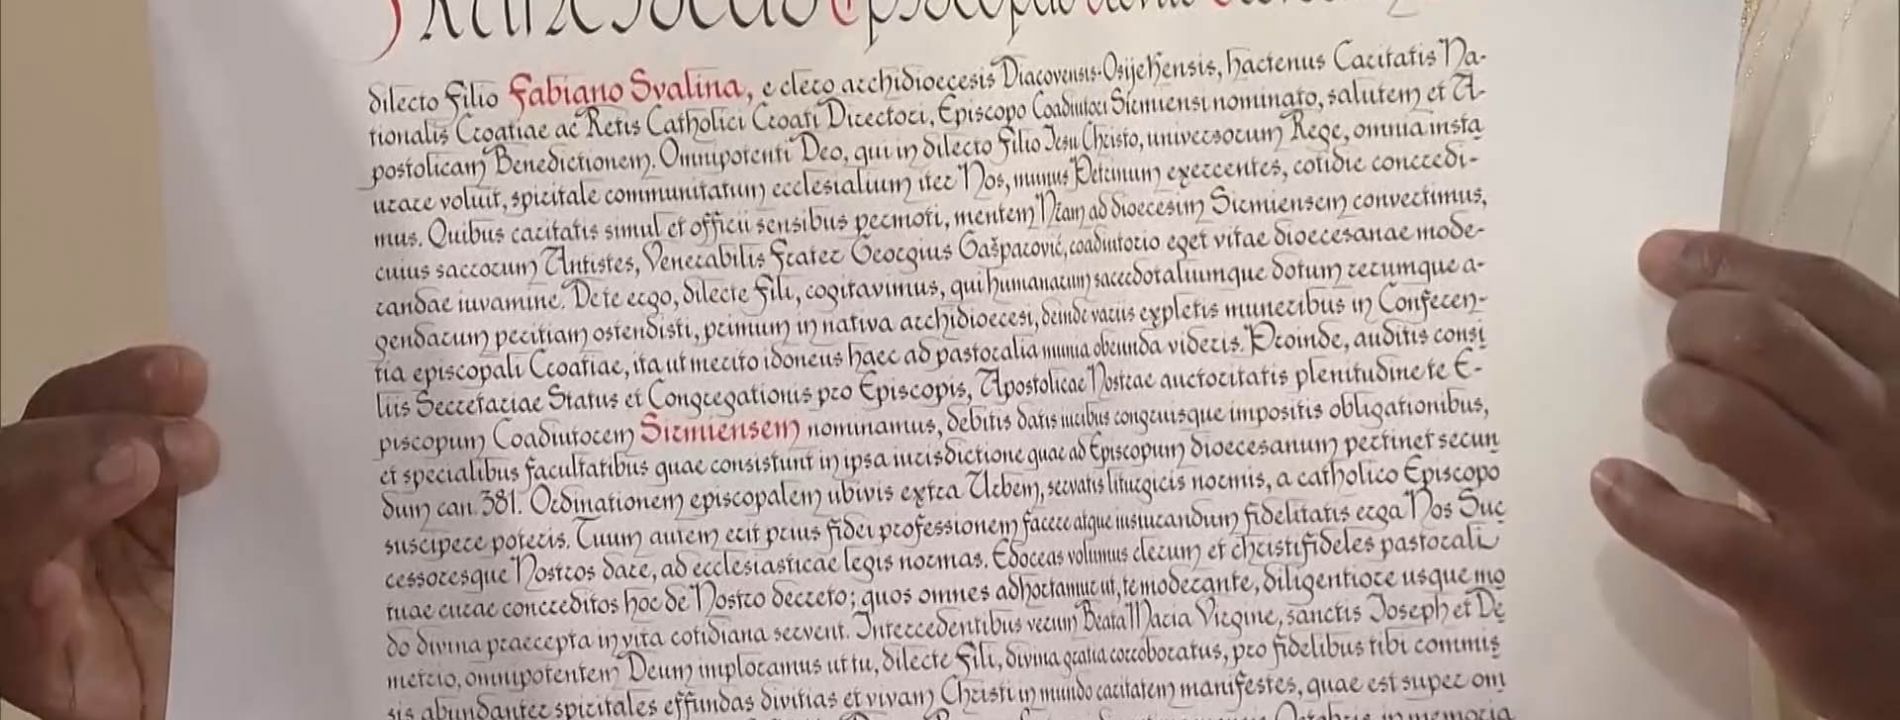 Franciscus Episcopus Servus Servorum
dilecto Filio Fabiano Svalina, e clero archidioecesis Diacovensis-Osijekensis, hactenus Caritatis Na-
tionalis Croatiae ac Retis Catholici Croati Directori, Episcopo Coadiutori Sirmiensi nominato, salutem et A-
postolicam Benedictionem. Omnipotenti Deo, qui in dilecto Filio Jesu Christo, universorum Rege, omnia insta
urare voluit, spiritale communitatum ecclesialium iter Nos, munus Petrinum exercentes, cotidie concredi-
mus. Quibus caritatis simul et officii sensibus permoti, mentem Nram ad dioecesim Sirmiensem convertimus,
cuius sacrorum Antistes, Venerabilis Frater Georgius Gašparović, coadiutorio eget vitae dioecesanae mode-
randae iuvamine. De te ergo, dilecte Fili, cogitavimus, qui humanarum sacerdotaliumque dotum rerumque a-
gendarum peritiam ostendisti, primum in nativa archidioecesi, deinde variis expletis muneribus in Conferen-
tia episcopali Croatiae, ita ut merito idoneus haec ad pastoralia munia obeunda videris. Proinde, auditis consi
liis Secretariae Status et Congregationis pro Episcopis, Apostolicae Nostrae auctoritatis plenitudine te E-
piscopum Coadiutorem Sirmiensem nominamus, debitis datis iuribus congruisque impositis obligationibus,
et specialibus facultatibus quae consistunt in ipsa iurisdictione quae ad Episcopum dioecesanum pertinet secun
dum can. 381. Ordinationem episcopalem ubivis extra Urbem, servatis liturgicis normis, a catholico Episcopo
suscipere poteris. Tuum autem erit prius fidei professionem facere atque iusiurandum fidelitatis erga Nos Suc
cessoresque Nostros dare, ad ecclesiasticae legis normas. Edoceas volumus clerum et christifideles pastorali
tuae curae concreditos hoc de Nostro decreto; quos omnes adhortamur ut, te moderante, diligentiore usque mo
do divina praecepta in vita cotidiana servent. Intercedentibus vero Beata Maria Virgine, sanctis Joseph et De
metrio, omnipotentem Deum imploramus ut tu, dilecte Fili, divina gratia corroboratus, pro fidelibus tibi commis
sis abundanter spiritales effundas divitias et vivam Christi in mundo caritatem manifestes, quae est super om
in memoria